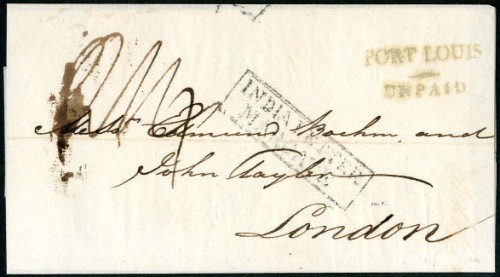 PORT LOUIS
UNPAID
INDIA LETTER
Messrs Edmund Boehm and
John Tayler
London